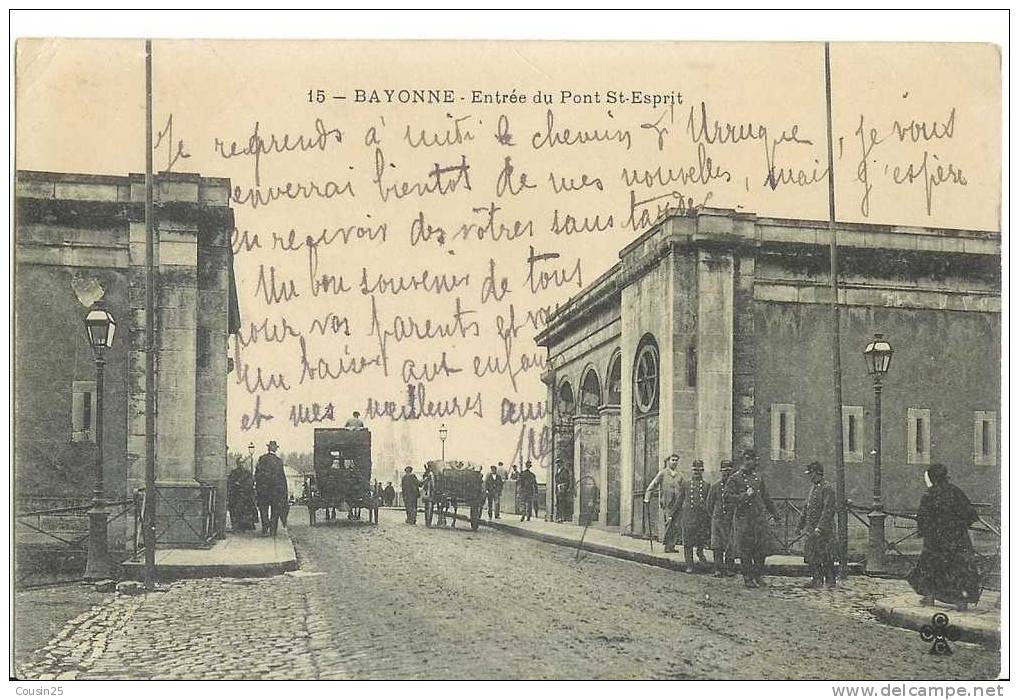 15 – BAYONNE - Entrée du Pont St-Esprit
Je reprends à midi le chemin d'Urrugne, je vous
enverrai bientôt de mes nouvelles, mais j'espère
en recevoir des vôtres sans tarder
Un bon souvenir de tous
pour vos parents et vous
Un baiser aux enfants
et mes meilleures
Cousin25
www.delcampe.net